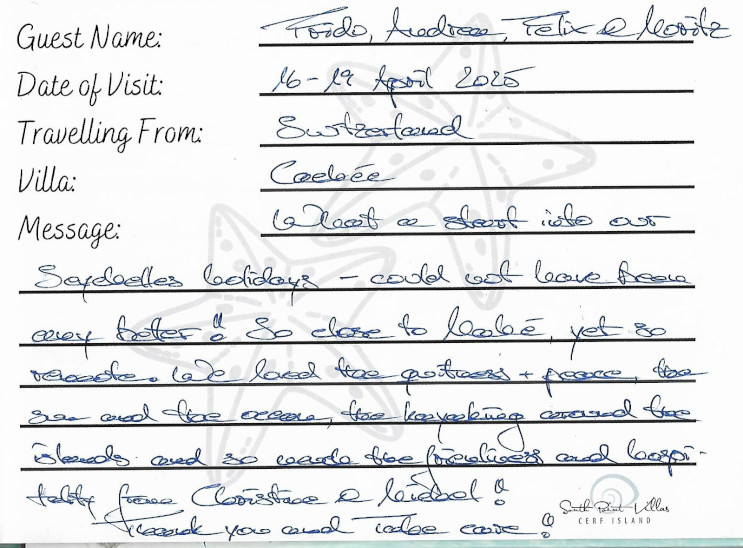 Guest Name: Frido, Andrea, Felix & Moritz
Date of Visit: 16-19 April 2025
Travelling From: Switzerland
Villa:
Message: What a start into our
Seychelles holidays - could not have been
any better! So close to Mahé, yet so
remote. We loved the quitness + peace, the
sea and the ocean, the kayaking around the
islands and so much the friendliness and hospi-
tality from Christine &
Thank you and Take care!
South Point Villas
CERF ISLAND